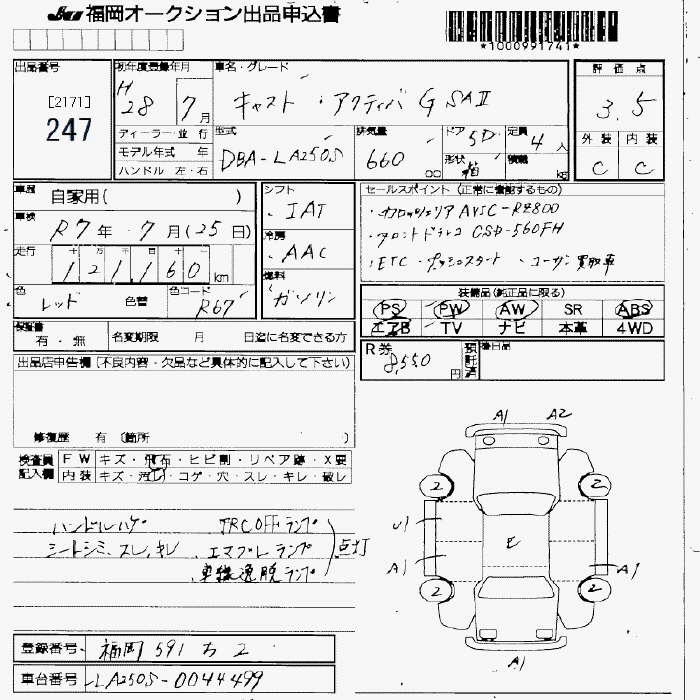 JU 福岡オークション出品申込書
*1000991741*
出品番号 初年度登録年月 車名・グレード 評価点
[2171] H 28 7月 キャスト ・ アクティバ G SAⅡ 3.5
247
ディーラー・並行 型式 排気量 ドア 5D 定員 4人 外装 内装
モデル年式 年 DBA-LA250S 660 cc 形状 箱 積載 kg C C
ハンドル 左・右
車歴 自家用( ) シフト セールスポイント (正常に機能するもの)
車検 R7年 7月(25日) ・IAT AVIC-RZ800
走行 十 万 千 百 十 一 冷房 ・フロントドラレコ CSD-560FH
121,160 km ・AAC ・ETC ・プッシュスタート ・ユーザー買取車
色 レッド 色替 色コード R67 燃料 ガソリン
装備品(純正品に限る)
PS PW AW SR ABS
エアB TV ナビ 本革 4WD
保証書 有・無 名変期限 月 日迄に名変できる方
R券 8,550円 預託済 後日品
出品店申告欄(不良内容・欠品など具体的に記入して下さい)
修復歴 有 (箇所 )
検査員記入欄 FW キズ・飛石・ヒビ割・リペア跡・X要
内装 キズ・汚れ・コゲ・穴・スレ・キレ・破レ
A1 A2
2 2
ハンドルハゲ ・TRC OFFランプ
シートシミ、スレ、キレ ・エマブレランプ 点灯
・車線逸脱ランプ
U1
A1 A1
2 2
A1
登録番号 福岡 591 ち 2
車台番号 LA250S-0044499